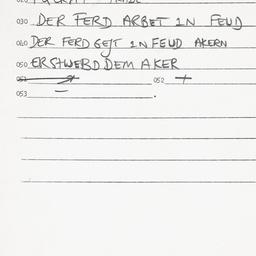 030 DER FERD ARBET IN FEUD
040 DER FERD GEJT IN FEUD AKERN
050 ERSTWEBD DEM AKER
051 052 +
053 –